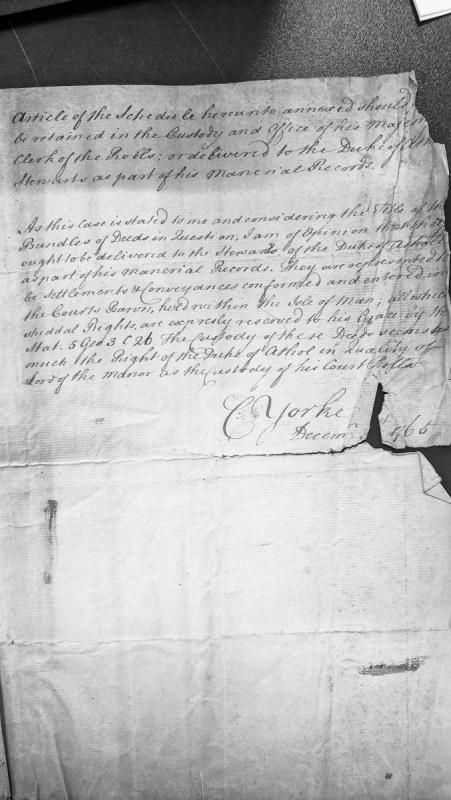 Article of the Schedule hereunto annexed should
be retained in the Custody and Office of his Majes
Clerk of the Rolls; or delivered to the Duke of Ath
Stewarts as part of his manerial Records.
As this Case is stated to me and considering the Titles of the
Bundles of Deeds in Question, I am of Opinion that they
ought to be delivered to the Stewards of the Duke of Athol
as part of his manerial Records. They are represented to
be Settlements & Conveyances conformed and entered in
the Courts Baron, held within the Isle of Man; all which
Rights, are expresly reserved to his Grace by the
Stat. 5 Geo 3 C 26 The Custody of these Deeds seems as
much the Right of the Duke of Athol in Quality of
Lord of the Manor as the Custody of his Court Rolls
C Yorke
Decem 765